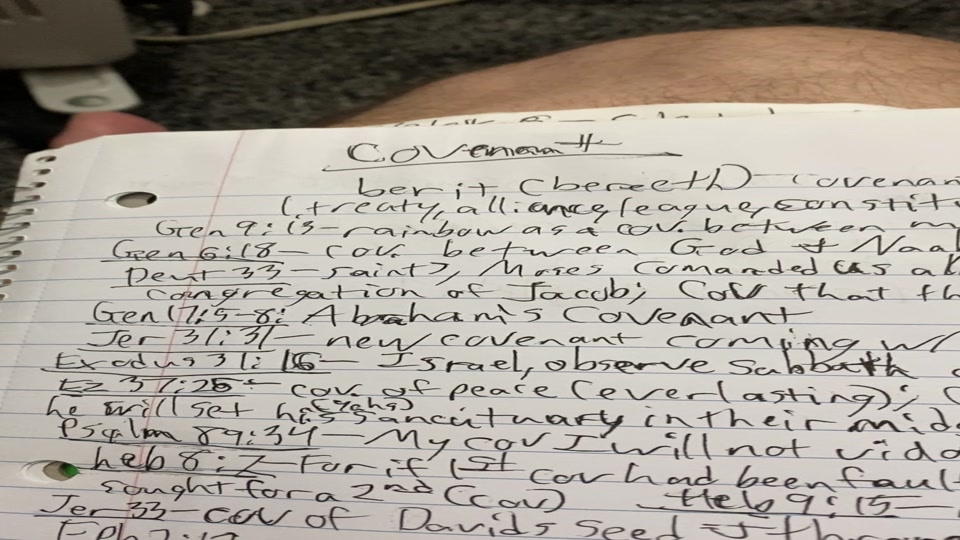 Covenant
berit (bereeth) - covenan
(treaty, alliance, league, constitu
Gen 9:13-rainbow as a cov. between m
Gen 6:18- cov. between God + Noa
Deut 33-saints, Moses Comanded us a
congregation of Jacob; Cov that th
Gen 17:5-8: Abraham's Covenant
Jer 31:31-new covenant coming w/
Exodus 31:16- Israel, observe Sabbath
Ez 37:26- cov. of peace (everlasting);
he will set his (Yahs) sancituary in their mid
Psalm 89:34-My cov I will not vio
heb 8:7-For if 1st cov had been faul
sought for a 2nd (cov) Heb 9:15-
Jer 33-cov of Davids seed